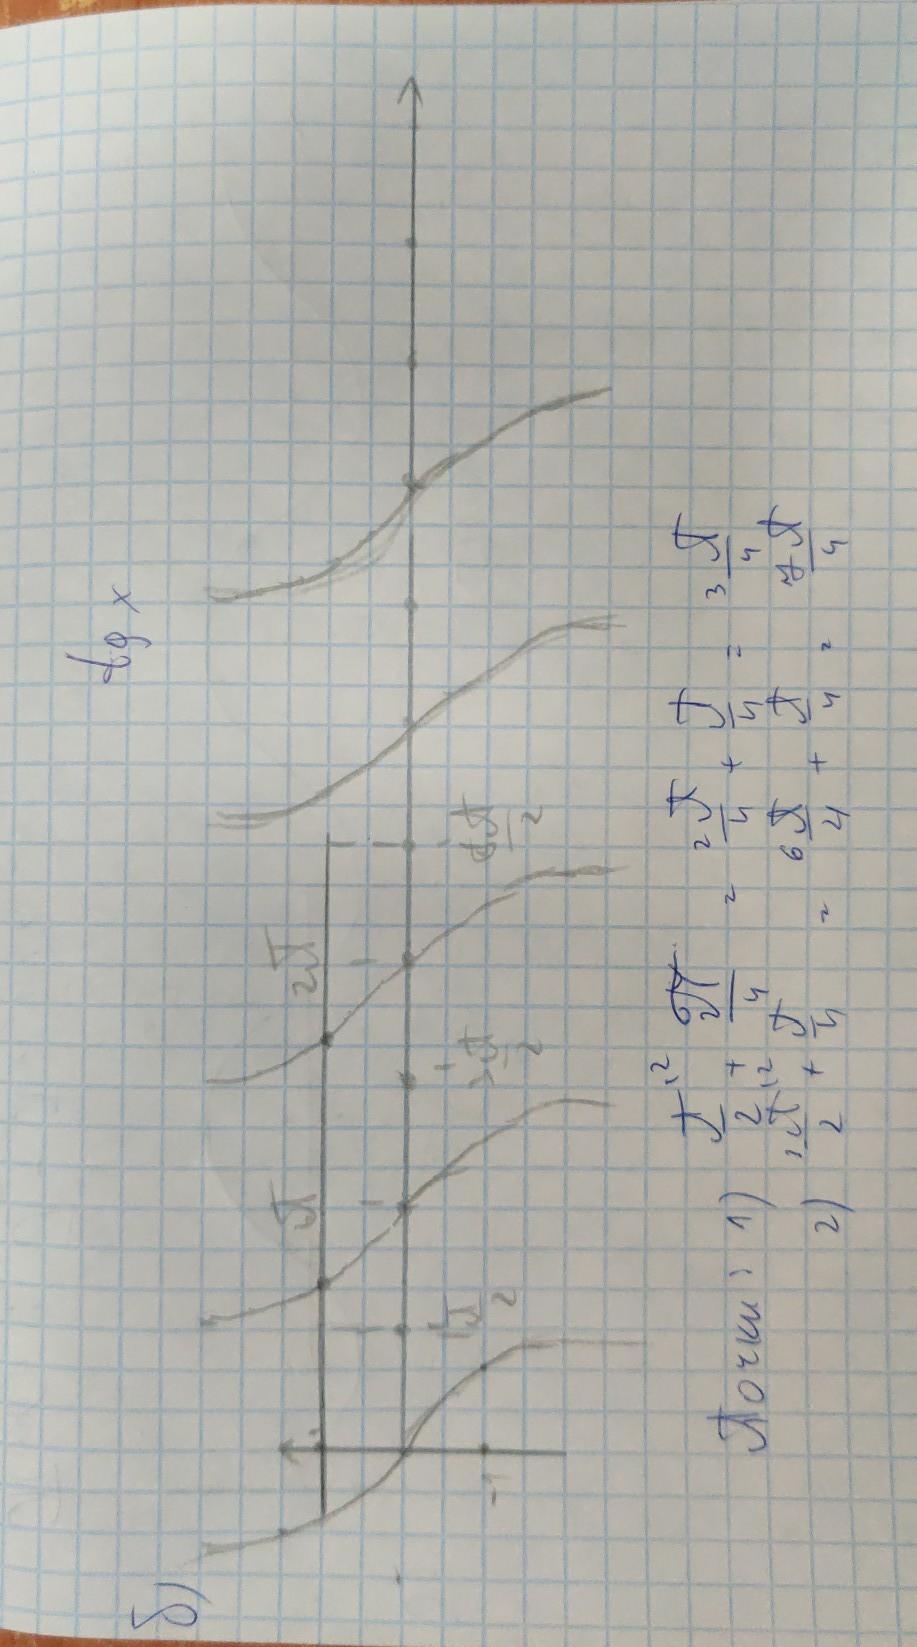 б)
tg x
π 2π
-1 π/2 3π/2 6π/2
Точки: 1) π/2 + π/4 = 2π/4 + π/4 = 3π/4
2) 3π/2 + π/4 = 6π/4 + π/4 = 7π/4